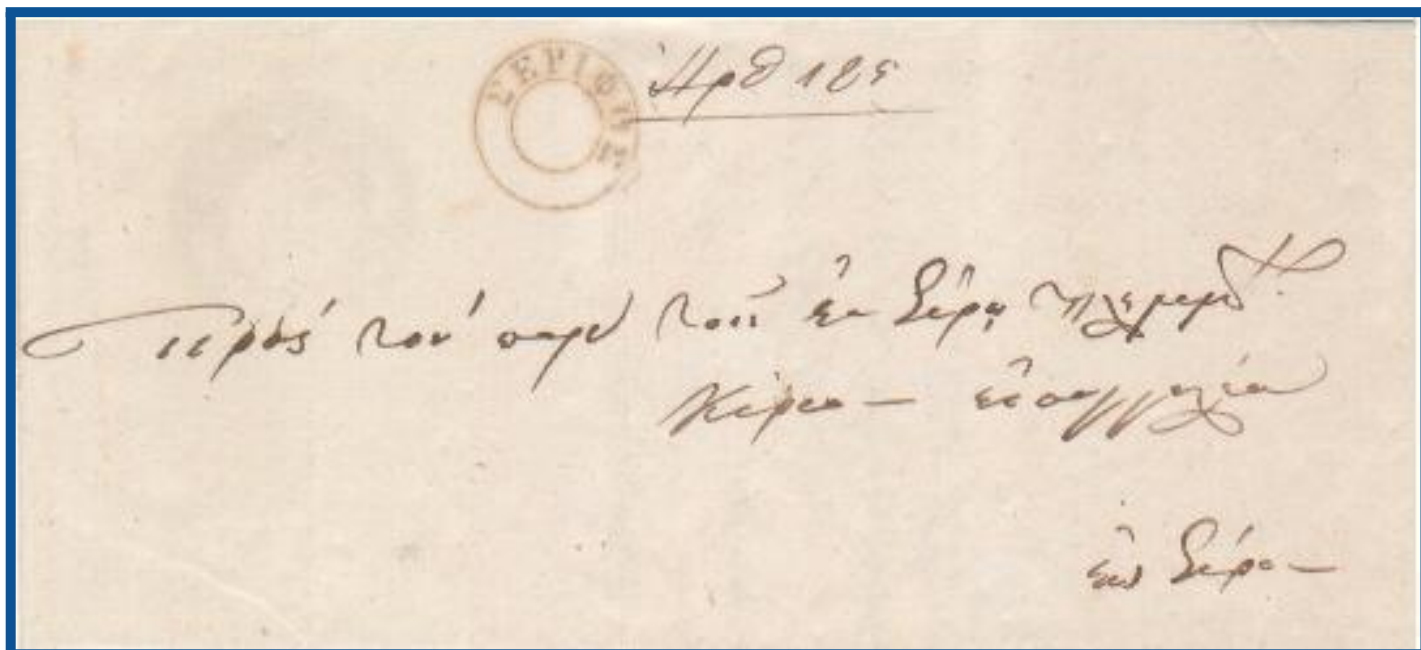 ΣΕΡΙΦΟΣ
Αρθ 185
Πρὸς τον παρὰ τοῖς ἐν Σύρᾳ
Κύριον εἰσαγγελέα
εἰς Σύραν